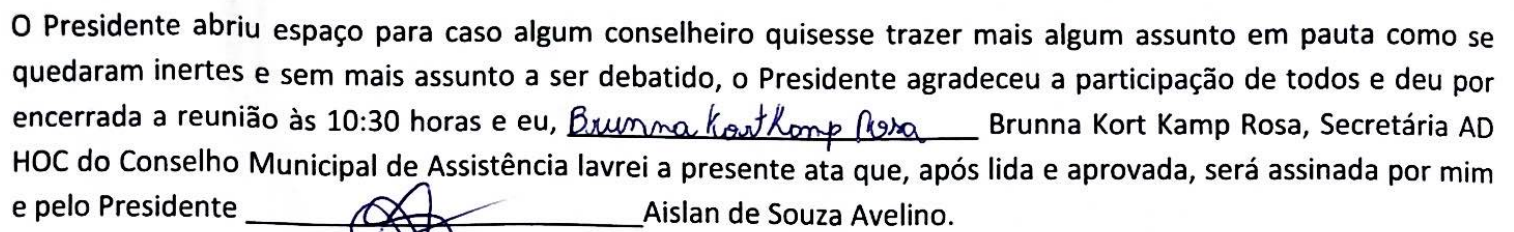 O Presidente abriu espaço para caso algum conselheiro quisesse trazer mais algum assunto em pauta como se
quedaram inertes e sem mais assunto a ser debatido, o Presidente agradeceu a participação de todos e deu por
encerrada a reunião às 10:30 horas e eu, Brunna Kort Kamp Rosa Brunna Kort Kamp Rosa, Secretária AD
HOC do Conselho Municipal de Assistência lavrei a presente ata que, após lida e aprovada, será assinada por mim
e pelo Presidente Aislan de Souza Avelino.